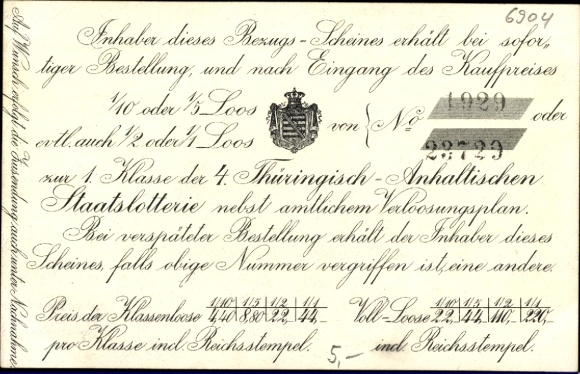 6904
Inhaber dieses Bezugs-Scheines erhält bei sofor„
tiger Bestellung, und nach Eingang des Kaufpreises
1/10 oder 1/5 Loos
evtl. auch 1/2 oder 1/1 Loos
von { No 1929 oder
23729
zur 1. Klasse der 4. Thüringisch-Anhaltischen
Staatslotterie nebst amtlichem Verloosungsplan.
Bei verspäteter Bestellung erhält der Inhaber dieses
Scheines, falls obige Nummer vergriffen ist, eine andere.
Preis der Klassenloose 1/10 1/5 1/2 1/1
4,40 8,80 22,- 44,-
pro Klasse incl. Reichsstempel.
Voll-Loose 1/10 1/5 1/2 1/1
22,- 44,- 110,- 220,-
incl. Reichsstempel.
5,—
Auf Wunsch erfolgt die Zusendung auch unter Nachnahme